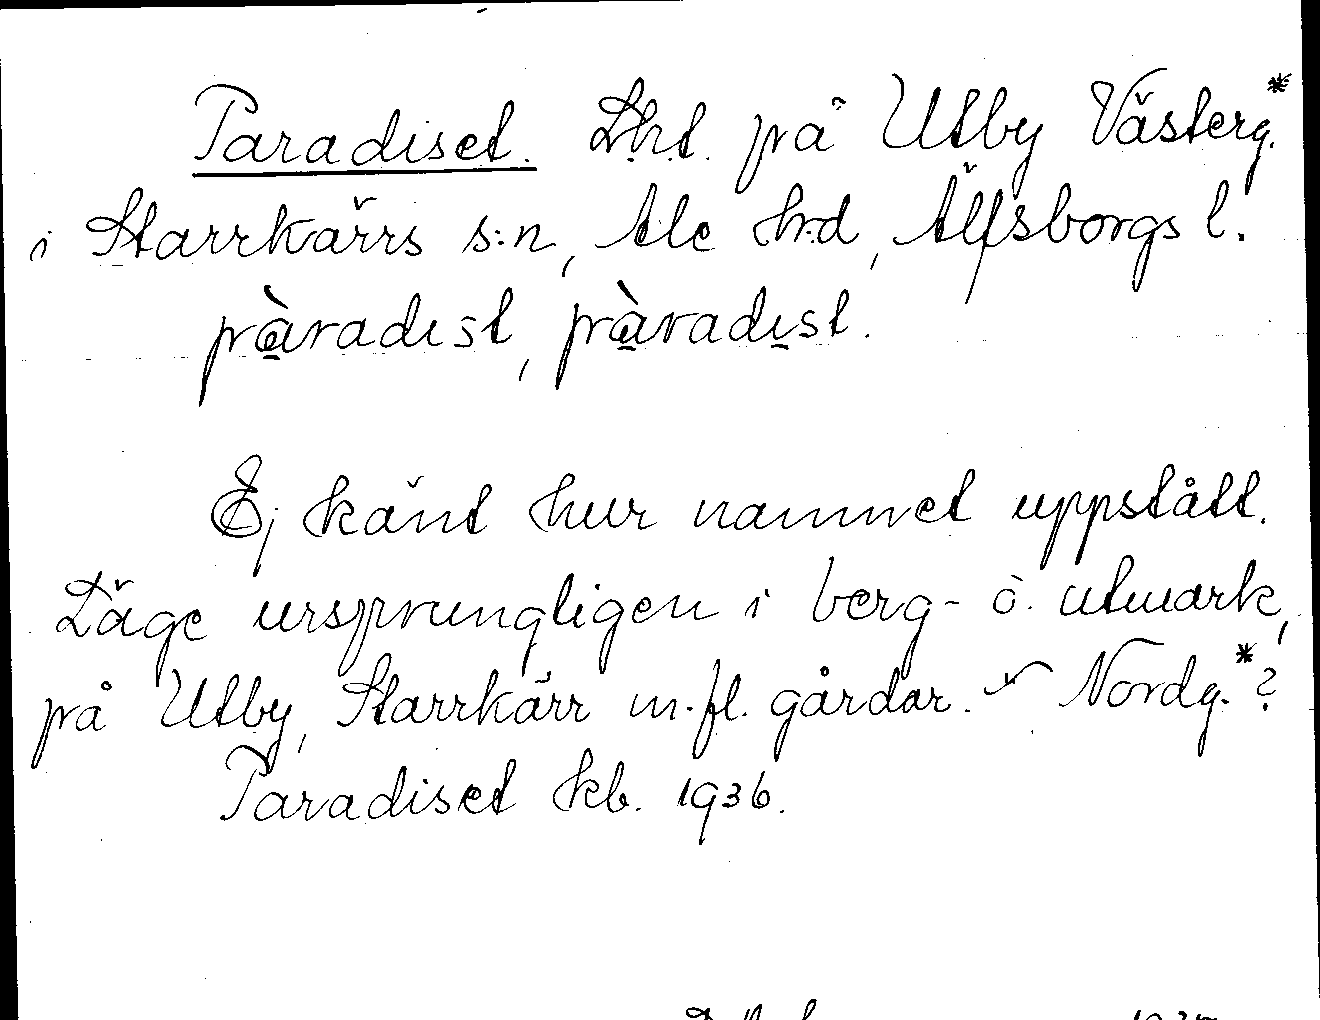 Paradiset. Lht. på Utby Västerg.*
i Starrkärrs s:n, Ale h:d, Älfsborgs l.
pàradist, pàradist.
Ej känt hur namnet uppstått.
Läge ursprungligen i berg- o. utmark,
på Utby, Starrkärr m.fl. gårdar. Nordg.*?
Paradiset kb. 1936.